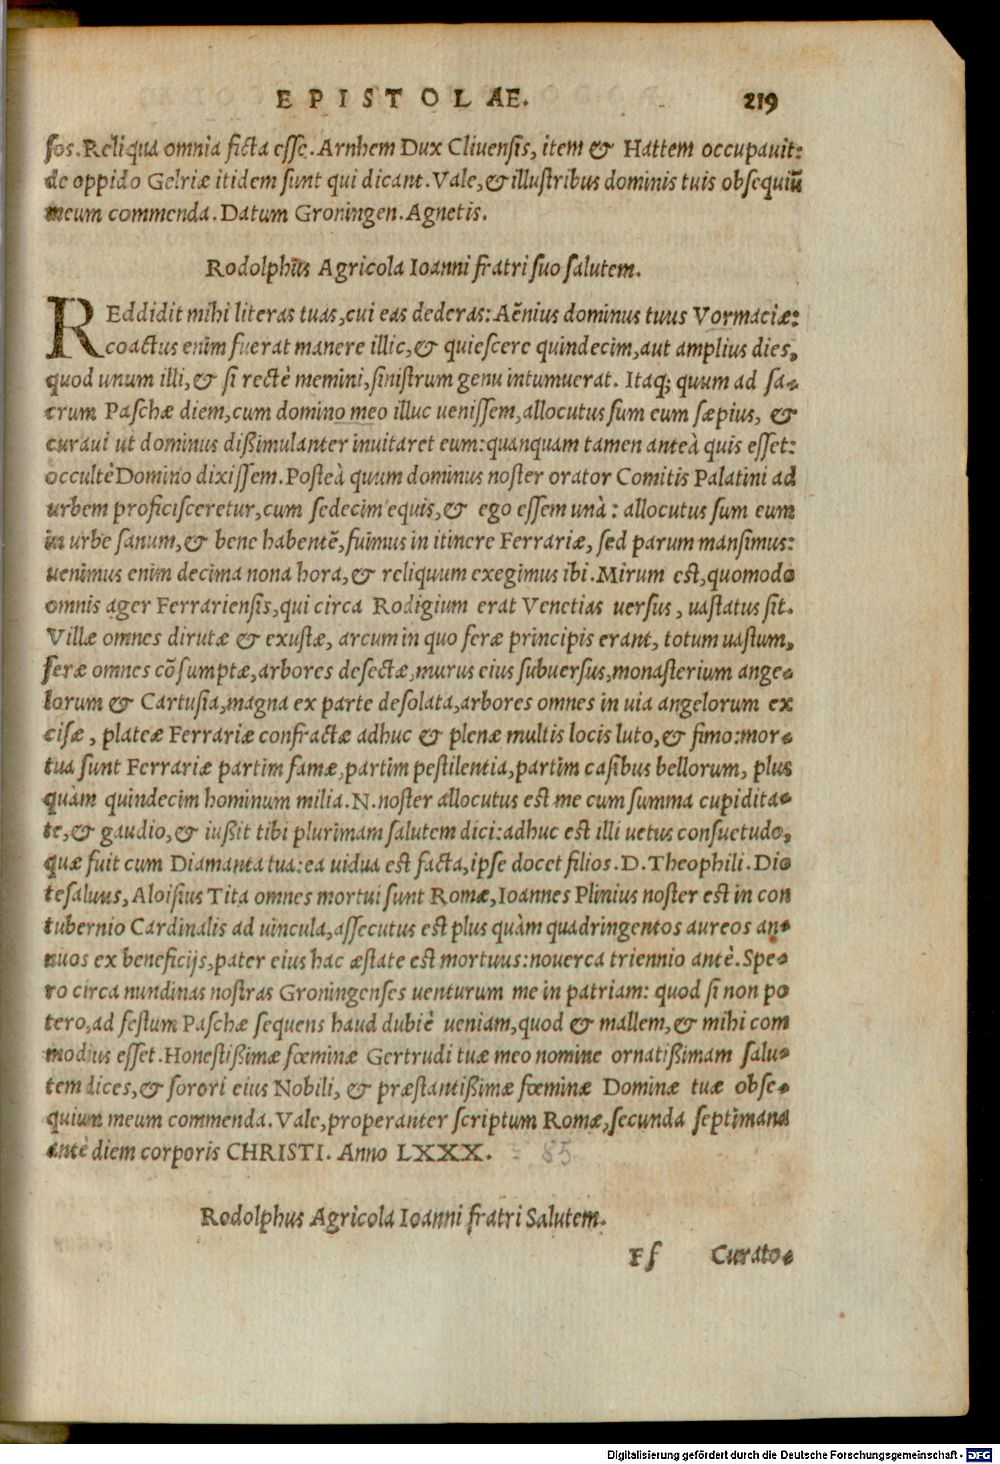 EPISTOLAE. 219
sos. Reliqua omnia ficta esse. Arnhem Dux Cliuensis, item & Hattem occupauit:
de oppido Gelriæ itidem sunt qui dicant. Vale, & illustribus dominis tuis obsequiũ
meum commenda. Datum Groningen. Agnetis.
Rodolphus Agricola Ioanni fratri suo salutem.
REddidit mihi literas tuas, cui eas dederas: Aẽnius dominus tuus Vormaciæ:
coactus enim fuerat manere illic, & quiescere quindecim, aut amplius dies,
quod unum illi, & si rectè memini, sinistrum genu intumuerat. Itaq; quum ad sa-
crum Paschæ diem, cum domino meo illuc uenissem, allocutus sum eum sæpius, &
curaui ut dominus dißimulanter inuitaret eum: quanquam tamen anteà quis esset:
occultè Domino dixissem. Posteà quum dominus noster orator Comitis Palatini ad
urbem proficisceretur, cum sedecim equis, & ego essem unà: allocutus sum eum
in urbe sanum, & bene habentẽ, fuimus in itinere Ferrariæ, sed parum mansimus:
uenimus enim decima nona hora, & reliquum exegimus ibi. Mirum est, quomodo
omnis ager Ferrariensis, qui circa Rodigium erat Venetias uersus, uastatus sit.
Villæ omnes dirutæ & exustæ, arcum in quo feræ principis erant, totum uastum,
feræ omnes cõsumptæ, arbores desectæ, murus eius subuersus, monasterium ange-
lorum & Cartusia, magna ex parte desolata, arbores omnes in uia angelorum ex
cisæ, plateæ Ferrariæ confractæ adhuc & plenæ multis locis luto, & fimo: mor-
tua sunt Ferrariæ partim famæ, partim pestilentia, partim casibus bellorum, plus
quàm quindecim hominum milia. N. noster allocutus est me cum summa cupidita-
te, & gaudio, & iußit tibi plurimam salutem dici: adhuc est illi uetus consuetudo,
quæ fuit cum Diamanta tua: ea uidua est facta, ipse docet filios. D. Theophili. Dio
tesaluus, Aloisius Tita omnes mortui sunt Romæ, Ioannes Plinius noster est in con
tubernio Cardinalis ad uincula, assecutus est plus quàm quadringentos aureos an-
nuos ex beneficijs, pater eius hac æstate est mortuus: nouerca triennio antè. Spe-
ro circa nundinas nostras Groningenses uenturum me in patriam: quod si non po
tero, ad festum Paschæ sequens haud dubiè ueniam, quod & mallem, & mihi com
modius esset. Honestißimæ fœminæ Gertrudi tuæ meo nomine ornatißimam salu-
tem dices, & sorori eius Nobili, & præstantißimæ fœminæ Dominæ tuæ obse-
quium meum commenda. Vale, properanter scriptum Romæ, secunda septimana
antè diem corporis CHRISTI. Anno LXXX. = 85
Rodolphus Agricola Ioanni fratri Salutem.
Ff Curato-
Digitalisierung gefördert durch die Deutsche Forschungsgemeinschaft - DFG